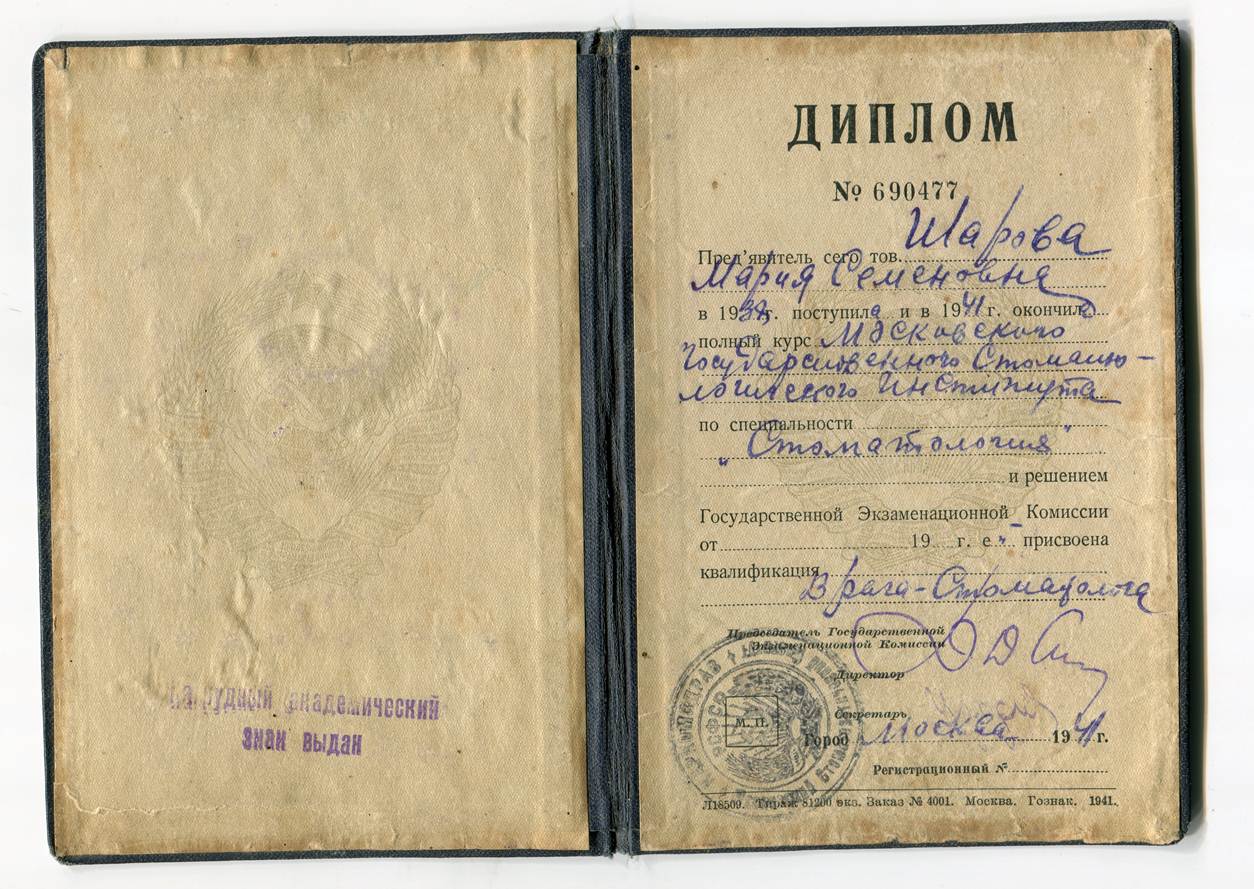 Нагрудный академический
знак выдан
ДИПЛОМ
№ 690477
Пред'явитель сего тов. Шарова
Мария Семеновна
в 1937г. поступила и в 1941 г. окончила
полный курс Московского
Государственного Стомато-
логического Института
по специальности
„Стоматология"
и решением
Государственной Экзаменационной Комиссии
от 19 г. ей присвоена
квалификация
Врача-Стоматолога
Председатель Государственной
Экзаменационной Комиссии
Директор
Секретарь
М. П.
Город Москва 1941г.
Регистрационный №
Л18509. Тираж 81200 экз. Заказ № 4001. Москва. Гознак. 1941.
НАРКОМЗДРАВ
РСФСР